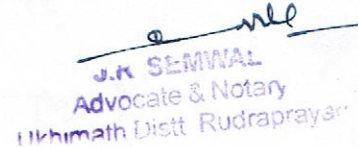 J.K SEMWAL
Advocate & Notary
Ukhimath Distt Rudraprayag